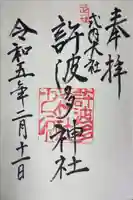 奉拝
式内大社
許波多神社
令和五年二月十一日